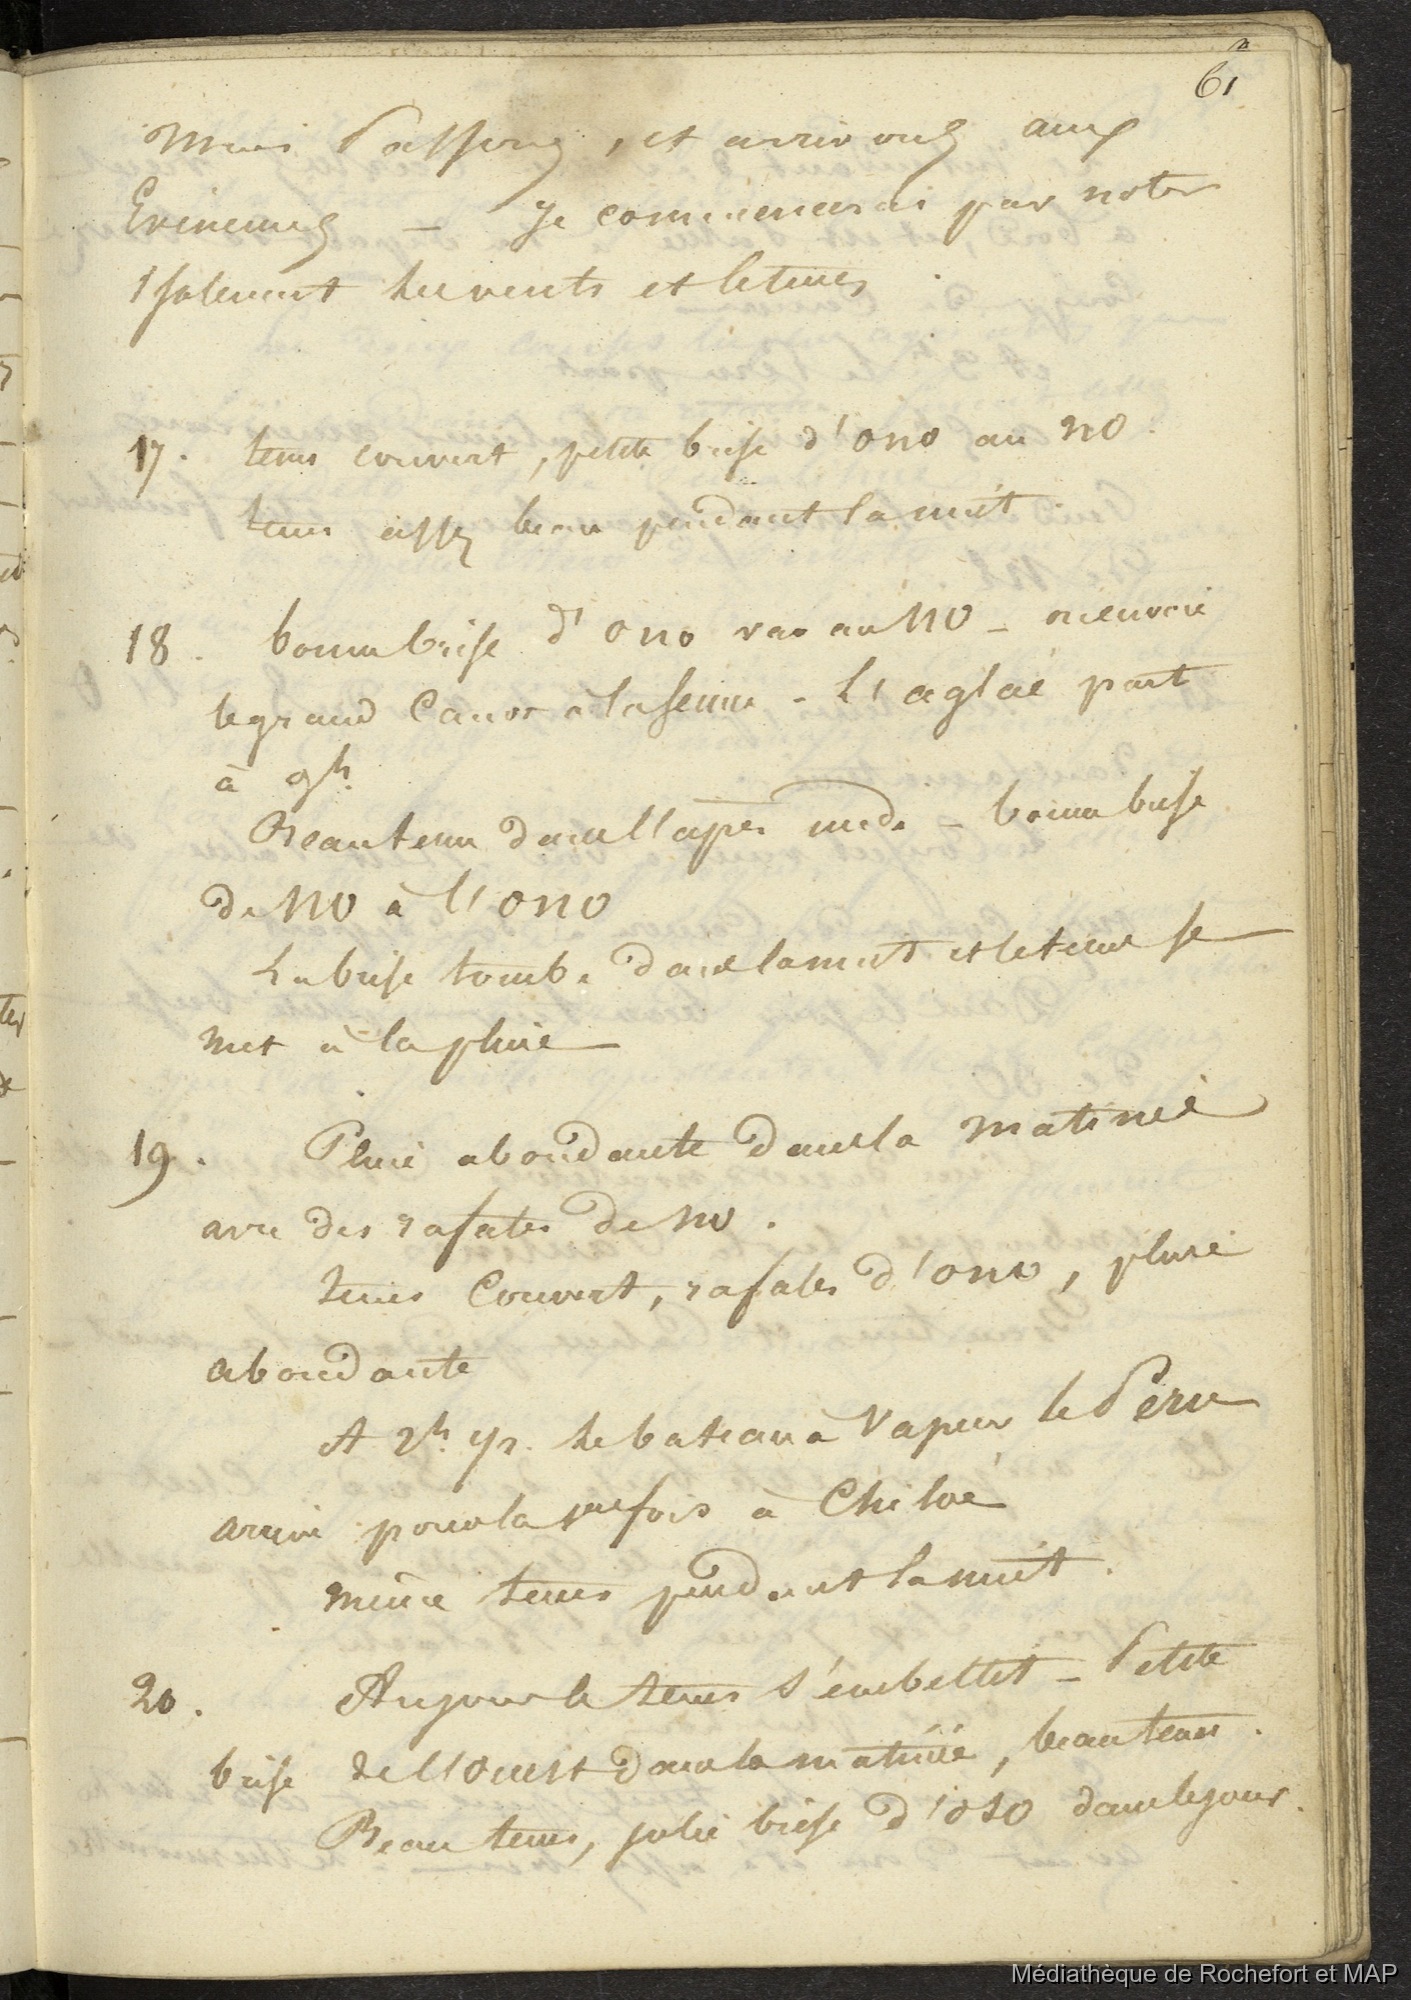 61
Mais Passons, et arrivons aux
Evènemens _ Je commencerai par noter
isolement les vents et le tems.
17. tems couvert, petite brise d'ONO au NO.
tems assez beau pendant la nuit.
18. bonne brise d'ONO var au NO _ on envoie
le grand Canot à la senne - L'aglaé part
à 9h.
Beau tems dans l'après midi - bonne brise
de NO à l'ONO
La brise tombe dans la nuit et le tems se
met à la pluie
19. Pluie abondante dans la matinée
avec des rafales de NO.
tems Couvert, rafales d'ONO, pluie
abondante
A 2h. 1/2. Le bateau à Vapeur le Péru
arrive pour la 1ere fois à Chiloé
même tems pendant la nuit.
20. Au jour le tems s'embellit _ Petite
brise de l'Ouest dans la matinée, beau tems.
Beau tems, jolie brise d'OSO dans le jour.
Médiathèque de Rochefort et MAP